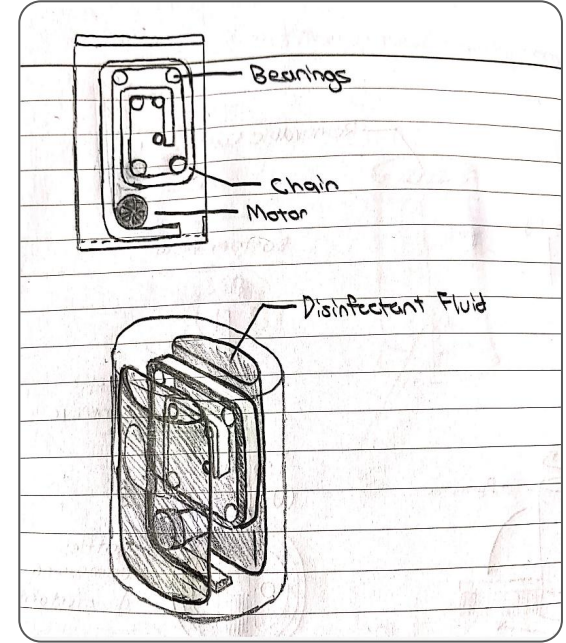 Bearings
Chain
Motor
Disinfectant Fluid